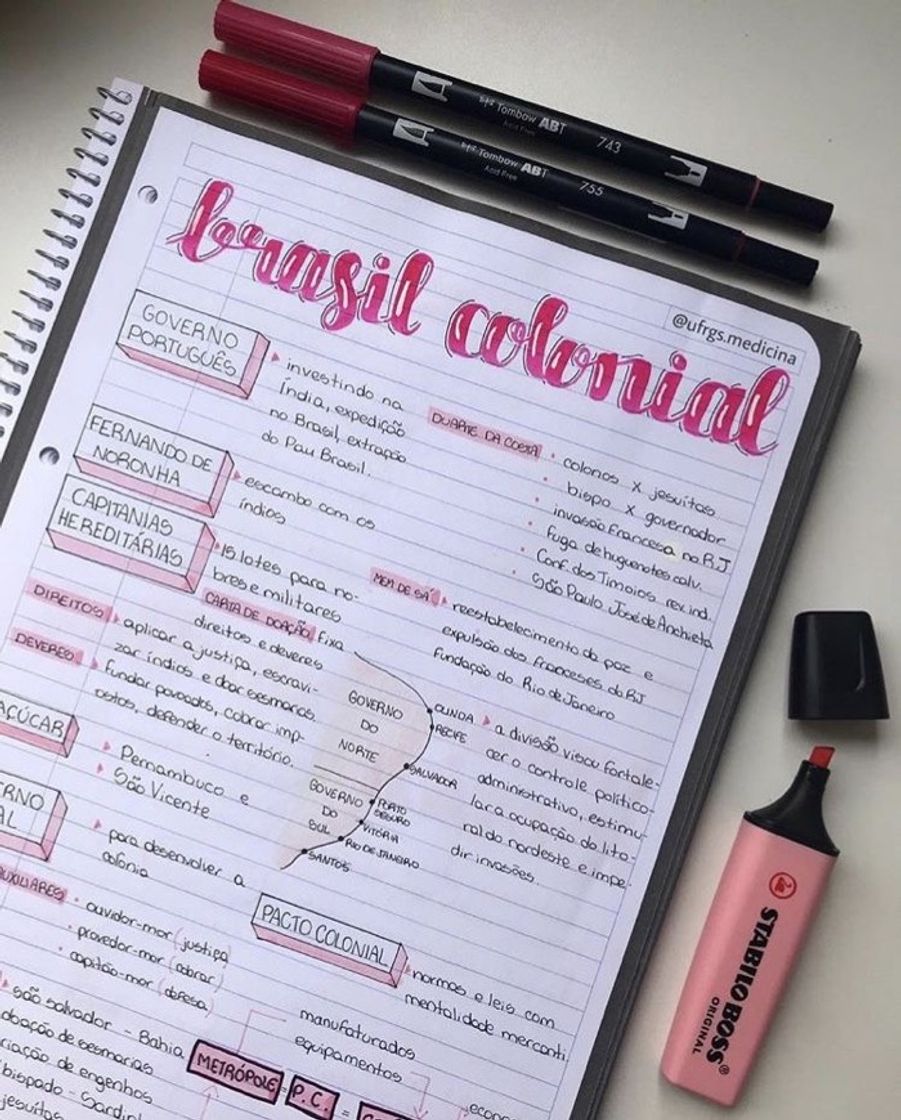 Tombow ABT
Acid Free
743
Tombow ABT
Acid Free
755
brasil colonial
@ufrgs.medicina
GOVERNO
PORTUGUÊS
investindo na
Índia, expedição
no Brasil, extração
do Pau Brasil.
FERNANDO DE
NORONHA
escambo com os
índios
CAPITANIAS
HEREDITÁRIAS
15 lotes para no-
bres e militares
CARTA DE DOAÇÃO fixa
direitos e deveres
DIREITOS
aplicar a justiça, escravi-
zar índios e doar sesmarias
DEVERES
fundar povoados, cobrar imp-
ostos, defender o território.
AÇÚCAR
Pernambuco e
São Vicente
ERNO
AL
para desenvolver a
colônia
AUXILIARES
ouvidor-mor (justiça)
provedor-mor (cobrar)
capitão-mor (defesa)
são salvador - Bahia
doação de sesmarias
criação de engenhos
bispado - Sardin
jesuítas
DUARTE DA COSTA
colonos x jesuítas
bispo x governador
invasão francesa no RJ
fuga de huguenotes calv.
Conf. dos Timoios rev. ind.
São Paulo José de Anchieta
MEM DE SÁ
reestabelecimento da paz e
expulsão dos franceses do RJ
Fundação do Rio de Janeiro
GOVERNO
DO
NORTE
GOVERNO
DO
SUL
OLINDA
RECIFE
SALVADOR
PORTO
SEGURO
VITÓRIA
RIO DE JANEIRO
SANTOS
a divisão visou fortale-
cer o controle político-
administrativo, estimu-
lar a ocupação do lito-
ral do nordeste e impe-
dir invasões.
PACTO COLONIAL
normas e leis com
mentalidade mercanti
manufaturados
equipamentos
METRÓPOLE = P.C. =
econo
STABILO BOSS®
ORIGINAL